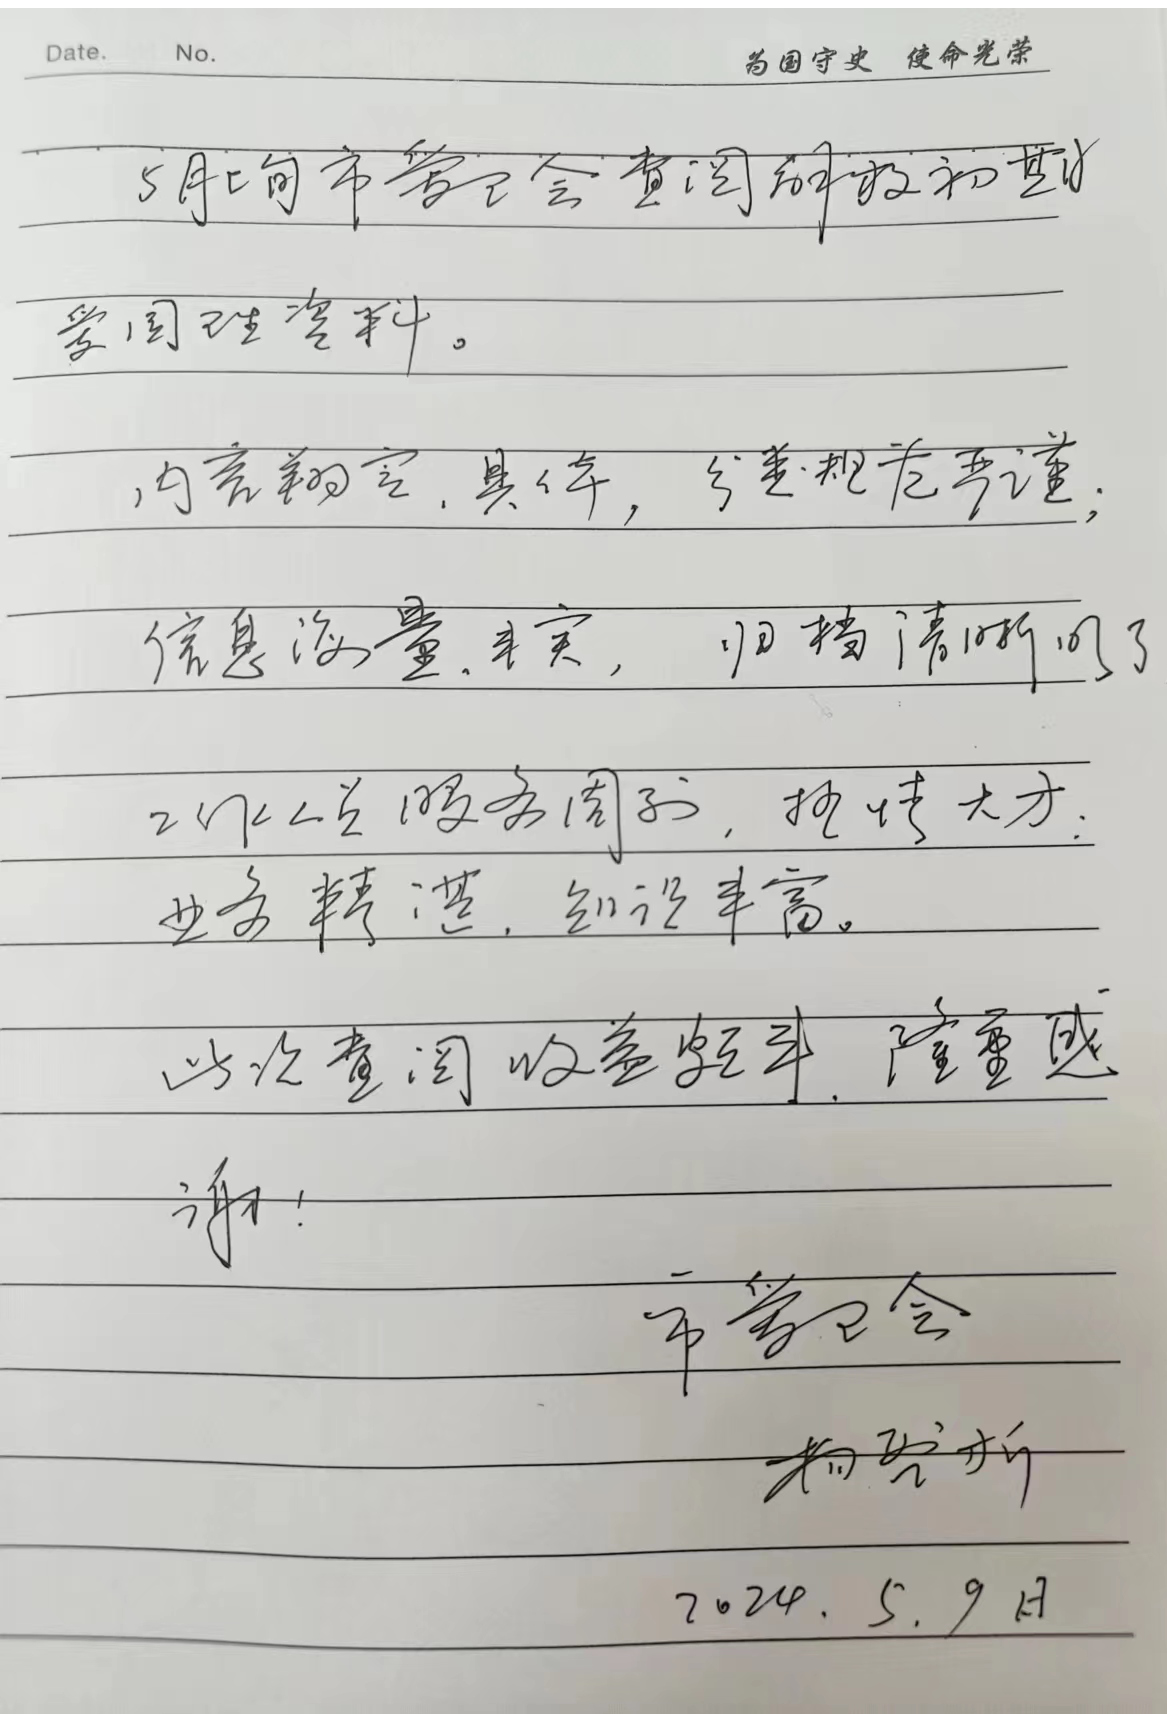 Date. No. 为国守史 使命光荣
5月上旬市爱卫会查阅解放初期
爱国卫生资料。
内容翔实、具体，分类规范严谨；
信息海量、丰实，归档清晰明了
工作人员服务周到，热情大方；
业务精湛，知识丰富。
此次查阅收益颇丰，隆重感
谢！
市爱卫会
2024.5.9日